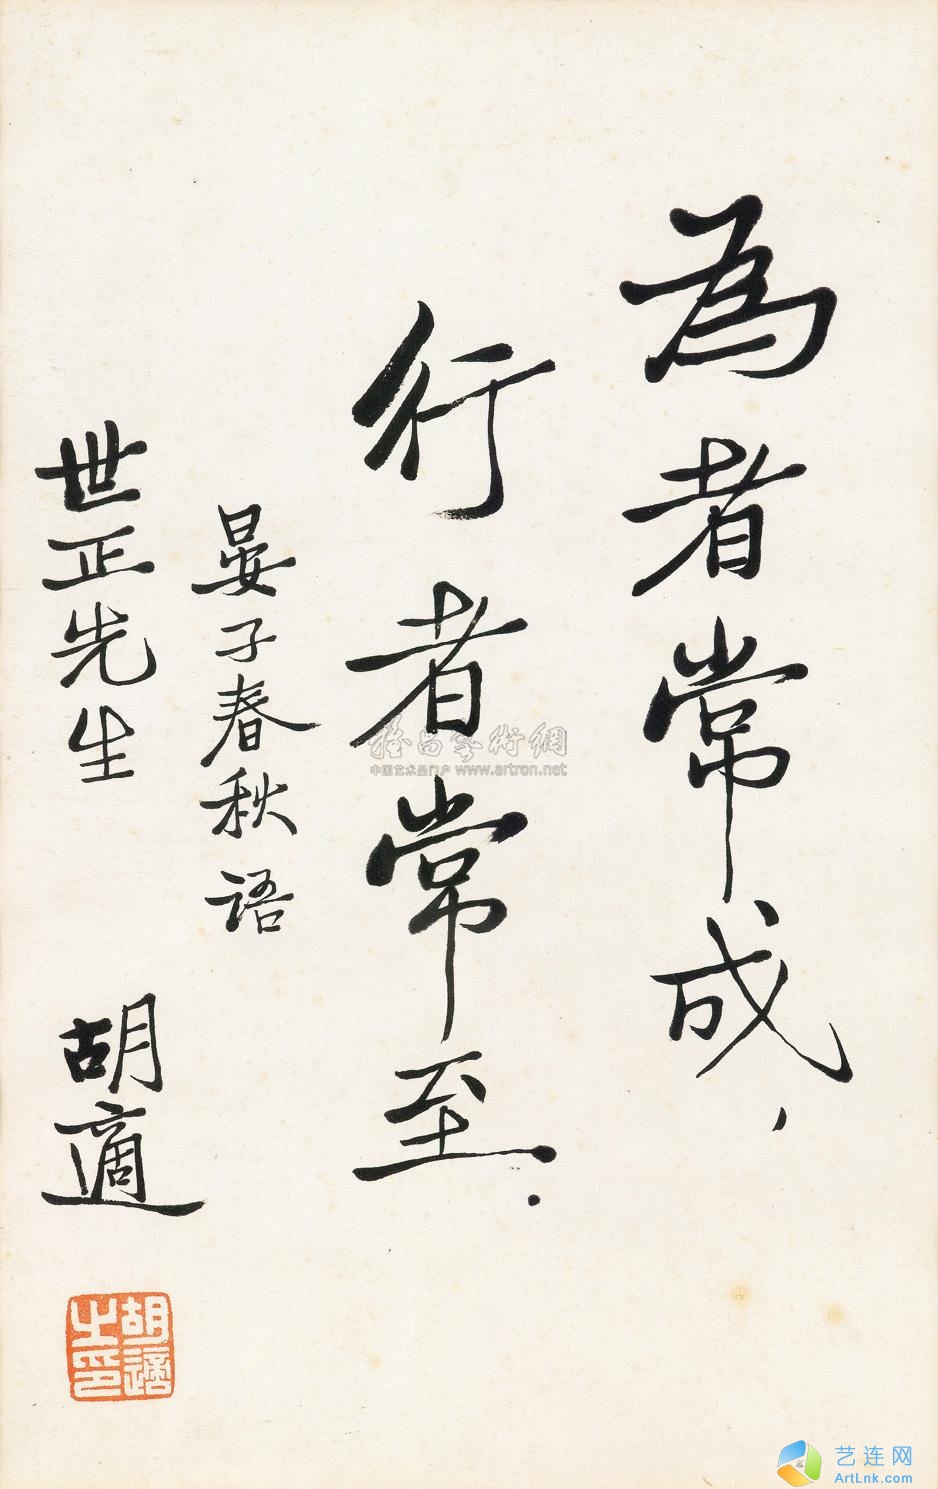 為者常成，
行者常至．
晏子春秋语
世正先生
胡適
胡適之印
雅昌藝術網
中国艺术品门户 www.artron.net
艺连网
ArtLnk.com